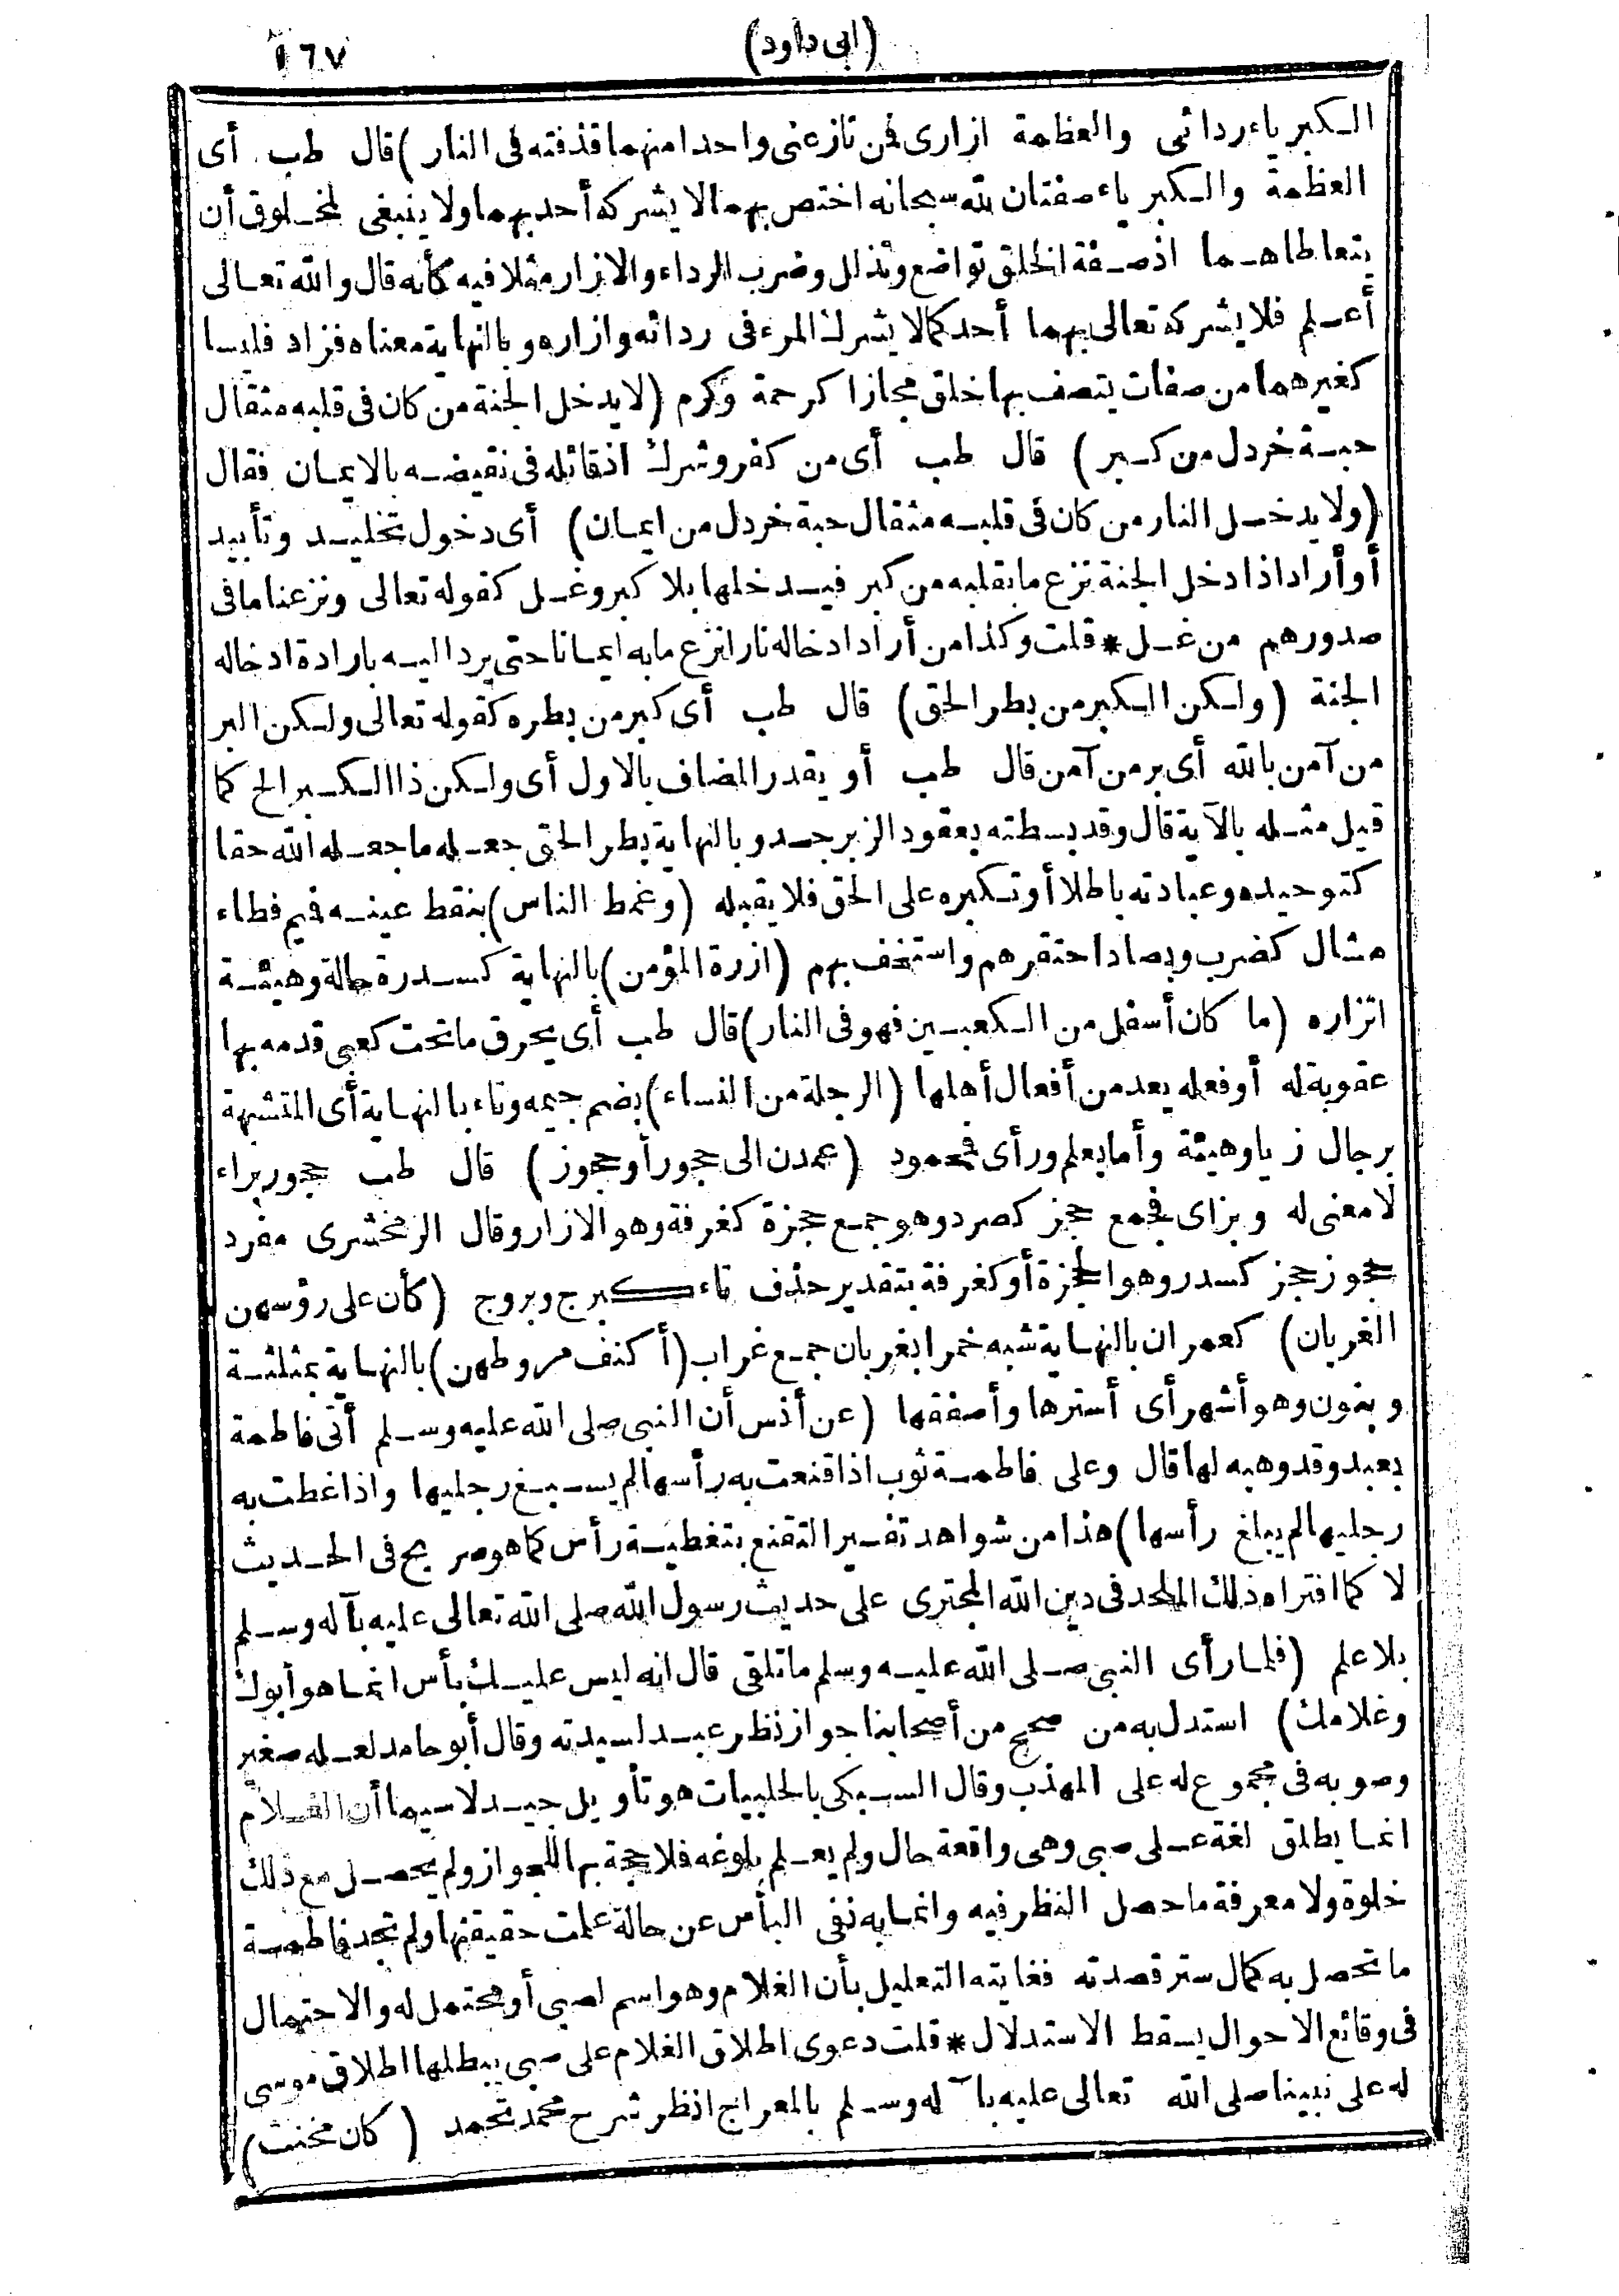 (ابى داود)
١٦٧
الكبرياء ردائى والعظمة ازارى فمن نازعنى واحدا منهما قذفته فى النار) قال طب أى
العظمة والكبرياء صفتان لله سبحانه اختص بهما لا يشركه أحد بهما ولا ينبغى لمخلوق أن
يتعاطاهما اذ صفة الخلق تواضع وتذلل وضرب الرداء والازار مثلا فيه كأنه قال والله تعالى
أعلم فلا يشركه تعالى بهما أحد كما لا يشرك المرء فى ردائه وازاره وبالنهاية معناه فزاد فليسا
كغيرهما من صفات يتصف بها خلق مجازا كرحمة وكرم (لا يدخل الجنة من كان فى قلبه مثقال
حبة خردل من كبر) قال طب أى من كفر وشرك اذ قابله فى نقيضه بالايمان فقال
(ولا يدخل النار من كان فى قلبه مثقال حبة خردل من ايمان) أى دخول تخليد وتأبيد
أو أراد اذا دخل الجنة نزع ما بقلبه من كبر فيدخلها بلا كبر وغل كقوله تعالى ونزعنا ما فى
صدورهم من غل * قلت وكذا من أراد ادخاله نارا نزع ما به ايمانا حتى يرد اليه بارادة ادخاله
الجنة (ولكن الكبر من بطر الحق) قال طب أى كبر من بطره كقوله تعالى ولكن البر
من آمن بالله أى بر من آمن قال طب أو يقدر المضاف بالاول أى ولكن ذا الكبر الخ كما
قيل مثله بالآية قال وقد بسطته بعقود الزبرجد وبالنهاية بطر الحق جعله ما جعله الله حقا
كتوحيده وعبادته باطلا أو تكبره على الحق فلا يقبله (وغمط الناس) بنقط عينه فيم فطاء
مشال كضرب وبصاد احتقرهم واستخف بهم (ازرة المؤمن) بالنهاية كسدرة حالة وهيئة
اتزاره (ما كان أسفل من الكعبين فهو فى النار) قال طب أى يحرق ما تحت كعبى قدمه بها
عقوبة له أو فعله يعد من أفعال أهلها (الرجلة من النساء) بضم جيمه وتاء بالنهاية أى المتشبهة
برجال زيا وهيئة وأما بعلم ورأى فمحمود (عمدن الى حجور أو حجوز) قال طب حجور براء
لا معنى له وبزاى فجمع حجز كصرد وهو جمع حجزة كغرفة وهو الازار وقال الزمخشرى مفرد
حجوز حجز كسدر وهو الحجزة أو كغرفة بتقدير حذف تاء كبرج وبروج (كأن على رؤسهن
الغربان) كعمران بالنهاية شبه خمرا بغربان جمع غراب (أكنف مروطهن) بالنهاية بمثلثة
وبنون وهو أشهر أى أسترها وأصفقها (عن أنس أن النبى صلى الله عليه وسلم أتى فاطمة
بعبد وقد وهبه لها قال وعلى فاطمة ثوب اذا قنعت به رأسها لم يسبغ رجليها واذا غطت به
رجليها لم يبلغ رأسها) هذا من شواهد تفسير التقنع بتغطية رأس كما هو صريح فى الحديث
لا كما افتراه ذلك الملحد فى دين الله المجترى على حديث رسول الله صلى الله تعالى عليه بآله وسلم
بلا علم (فلما رأى النبى صلى الله عليه وسلم ما تلقى قال انه ليس عليك بأس انما هو أبوك
وغلامك) استدل به من صحح من أصحابنا جواز نظر عبد لسيدته وقال أبو حامد لعله صغير
وصوبه فى مجموع له على المهذب وقال السبكى بالحلبيات هو تأويل جيد لا سيما أن الغلام
انما يطلق لغة على صبى وهى واقعة حال ولم يعلم بلوغه فلا حجة بها للجواز ولم يحصل مع ذلك
خلوة ولا معرفة ما حصل النظر فيه وانما به نفى البأس عن حالة علمت حقيقتها ولم تجد فاطمة
ما تحصل به كمال ستر قصدته فغايته التعليل بأن الغلام وهو اسم لصبى أو محتمل له والاحتمال
فى وقائع الاحوال يسقط الاستدلال * قلت دعوى اطلاق الغلام على صبى يبطلها اطلاق موسى
له على نبينا صلى الله تعالى عليه بآله وسلم بالمعراج انظر شرح محمد تحمد (كان مخنث)